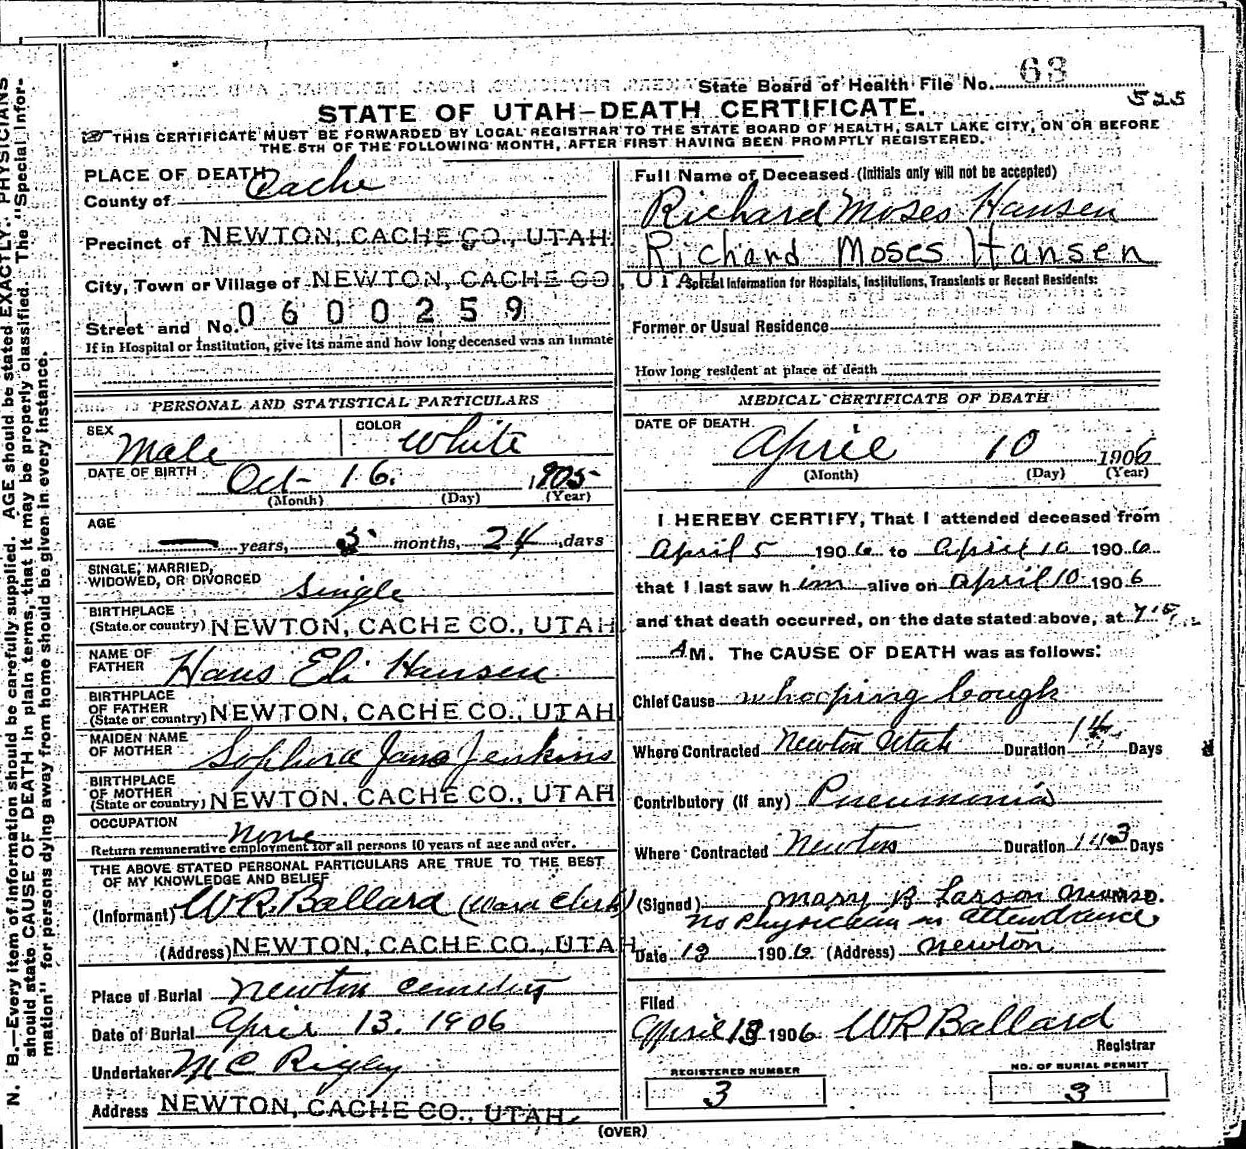 State Board of Health File No. 63
525
STATE OF UTAH-DEATH CERTIFICATE.
THIS CERTIFICATE MUST BE FORWARDED BY LOCAL REGISTRAR TO THE STATE BOARD OF HEALTH, SALT LAKE CITY, ON OR BEFORE
THE 5TH OF THE FOLLOWING MONTH, AFTER FIRST HAVING BEEN PROMPTLY REGISTERED.
PLACE OF DEATH
County of Cache
Precinct of NEWTON, CACHE CO., UTAH
City, Town or Village of NEWTON, CACHE CO., UTAH
Street and No. 0600259
If in Hospital or Institution, give its name and how long deceased was an inmate
Full Name of Deceased (Initials only will not be accepted)
Richard Moses Hansen
Richard Moses Hansen
Special Information for Hospitals, Institutions, Transients or Recent Residents:
Former or Usual Residence
How long resident at place of death
PERSONAL AND STATISTICAL PARTICULARS
SEX Male COLOR White
DATE OF BIRTH Oct- 16. 1905
(Month) (Day) (Year)
AGE
— years, 5 months, 24 days
SINGLE, MARRIED,
WIDOWED, OR DIVORCED Single
BIRTHPLACE
(State or country) NEWTON, CACHE CO., UTAH
NAME OF
FATHER Hans Eli Hansen
BIRTHPLACE
OF FATHER
(State or country) NEWTON, CACHE CO., UTAH
MAIDEN NAME
OF MOTHER Jane Jenkins
BIRTHPLACE
OF MOTHER
(State or country) NEWTON, CACHE CO., UTAH
OCCUPATION none
Return remunerative employment for all persons 10 years of age and over.
THE ABOVE STATED PERSONAL PARTICULARS ARE TRUE TO THE BEST
OF MY KNOWLEDGE AND BELIEF
(Informant) W R Ballard (Ward Clerk)
(Address) NEWTON, CACHE CO., UTAH
Place of Burial Newton Cemetery
Date of Burial April 13. 1906
Undertaker M C Rigby
Address NEWTON, CACHE CO., UTAH.
MEDICAL CERTIFICATE OF DEATH
DATE OF DEATH.
April 10 1906
(Month) (Day) (Year)
I HEREBY CERTIFY, That I attended deceased from
April 5 1906 to April 10 1906
that I last saw him alive on April 10 1906
and that death occurred, on the date stated above, at
A M. The CAUSE OF DEATH was as follows:
Chief Cause whooping Cough
Where Contracted Newton Utah Duration 14 Days
Contributory (if any) Pneumonia
Where Contracted Newton Duration 3 Days
(Signed) Mary B Larson
No Physician in attendance
Date 1906 (Address) Newton
Filed
April 13 1906 W R Ballard
Registrar
REGISTERED NUMBER
3
NO. OF BURIAL PERMIT
3
(OVER)
N. B.—Every item of information should be carefully supplied. AGE should be stated EXACTLY. PHYSICIANS
should state CAUSE OF DEATH in plain terms, that it may be properly classified. The "Special Infor-
mation" for persons dying away from home should be given in every instance.